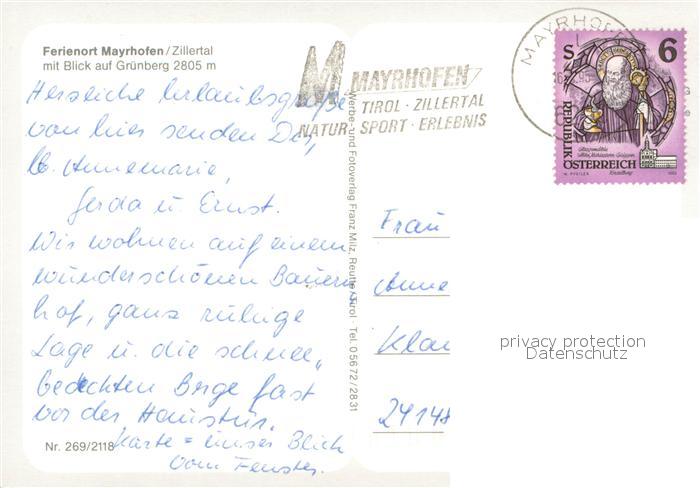 Ferienort Mayrhofen/Zillertal
mit Blick auf Grünberg 2805 m
Herzliche Urlaubsgrüße
von hier senden Dir,
lb. Annemarie,
Gerda u. Ernst.
Wir wohnen auf einem
wunderschönen Bauern
hof, ganz ruhige
Lage u. die schnee„
bedeckten Berge fast
vor der Haustür.
Karte = unser Blick
vom Fenster.
Nr. 269/2118
Werbe- und Fotoverlag Franz Milz, Reutte/Tirol · Tel. 05672/2831
M MAYRHOFEN
TIROL · ZILLERTAL
NATUR · SPORT · ERLEBNIS
MAYRHOFEN
S 6
REPUBLIK
ÖSTERREICH
Frau
Anne
Klau
24148
privacy protection
Datenschutz